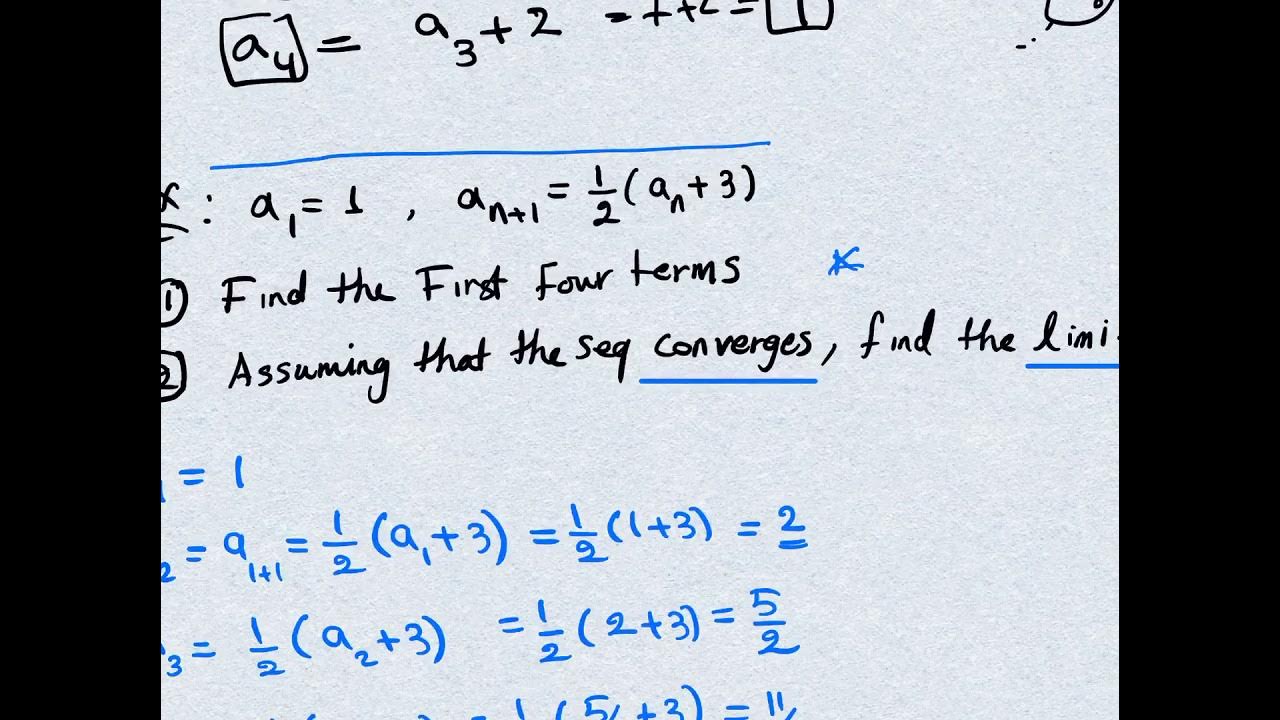 a₄ = a₃ + 2 =
: a₁ = 1 , aₙ₊₁ = 1/2 (aₙ + 3)
① Find the First Four terms
② Assuming that the seq converges, find the limi
= 1
₂ = a₁₊₁ = 1/2 (a₁ + 3) = 1/2 (1+3) = 2
₃ = 1/2 (a₂ + 3) = 1/2 (2+3) = 5/2